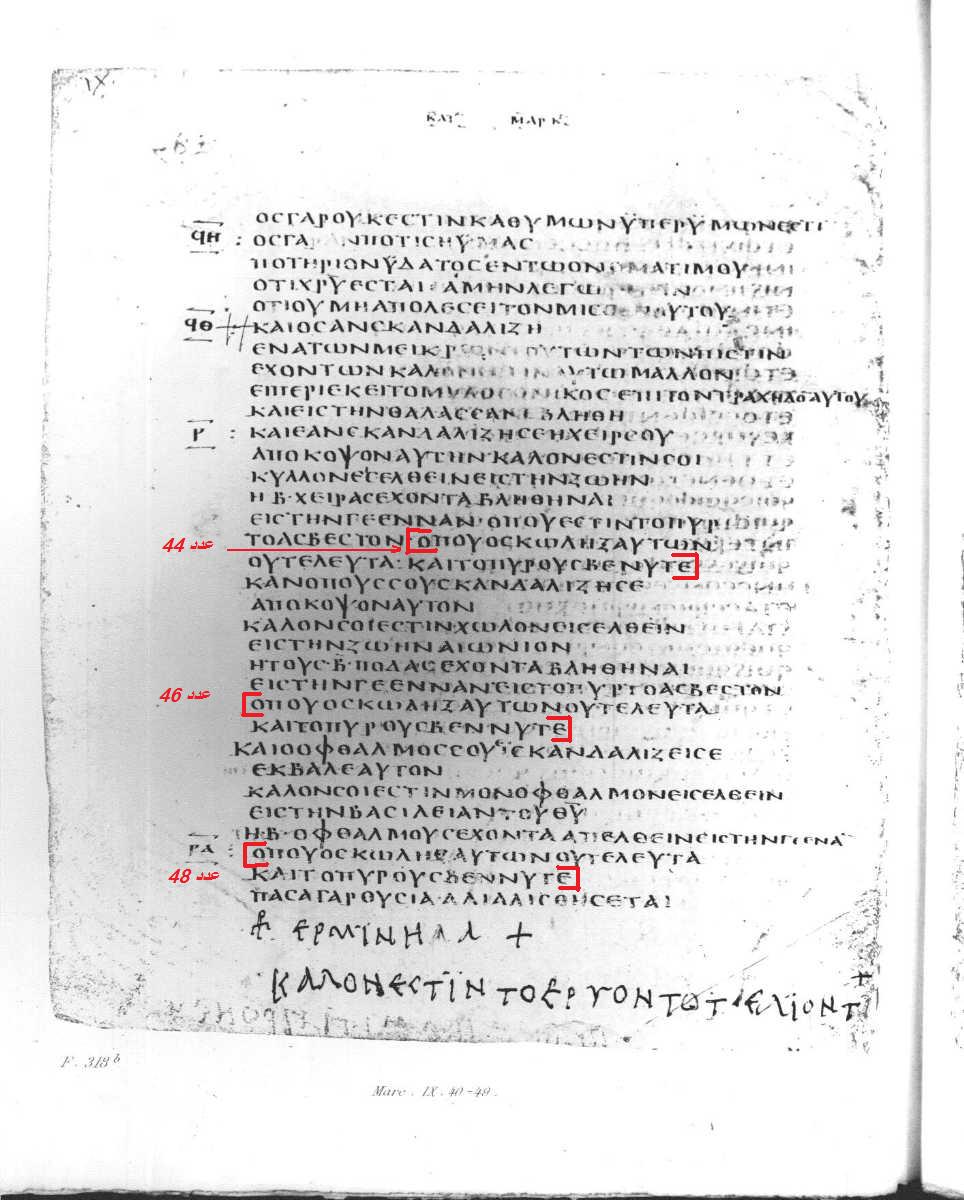 IX.
ΚΑΤ ΜΑΡΚ
ΟΣΓΑΡΟΥΚΕΣΤΙΝΚΑΘΥΜΩΝΫΠΕΡΫΜΩΝΕΣΤΙ
ϤΗ : ΟΣΓΑΡ ΑΝΠΟΤΙΣΗΫΜΑΣ
ΠΟΤΗΡΙΟΝΫΔΑΤΟΣΕΝΤΩΟΝΟΜΑΤΙΜΟΥ
ΟΤΙΧΡΥΕΣΤΑΙ: ΑΜΗΝΛΕΓΩ ΙΝ
ΟΤΙΟΥΜΗΑΠΟΛΕΣΕΙΤΟΝΜΙΣΘ ΑΥΤΟΥ
ϤΘ ΚΑΙΟΣΑΝΣΚΑΝΔΑΛΙΖΗ
ΕΝΑΤΩΝΜΕΙΚΡΩΝΤΟΥΤΩΝΤΩΝΠΙΣΤΙΝ
ΕΧΟΝΤΩΝΚΑΛΟΝΕΣΤΙΝΑΥΤΩΜΑΛΛΟΝ
ΕΠΕΡΙΕΚΕΙΤΟΜΥΛΟΣΟΝΙΚΟΣΕΠΙΤΟΝΤΡΑΧΗΛΟΑΥΤΟΥ
ΚΑΙΕΙΣΤΗΝΘΑΛΑΣΣΑΝΕΒΛΗΘΗ
Ρ : ΚΑΙΕΑΝΣΚΑΝΔΑΛΙΖΗΣΕΗΧΕΙΡΣΟΥ
ΑΠΟΚΟΨΟΝΑΥΤΗΝ·ΚΑΛΟΝΕΣΤΙΝΣΟΙ
ΚΥΛΛΟΝΕΙΣΕΛΘΕΙΝΕΙΣΤΗΝΖΩΗΝ
Η·Β·ΧΕΙΡΑΣΕΧΟΝΤΑΒΛΗΘΗΝΑΙ
ΕΙΣΤΗΝΓΕΕΝΝΑΝ·ΟΠΟΥΕΣΤΙΝΤΟΠΥΡ
عدد 44 ΤΟΑΣΒΕΣΤΟΝ ΟΠΟΥΟΣΚΩΛΗΞΑΥΤΩΝ
ΟΥΤΕΛΕΥΤΑ: ΚΑΙΤΟΠΥΡΟΥΣΒΕΝΥΤΕ
ΚΑΝΟΠΟΥΣΣΟΥΣΚΑΝΔΑΛΙΖΗΣΕ
ΑΠΟΚΟΨΟΝΑΥΤΟΝ
ΚΑΛΟΝΣΟΙΕΣΤΙΝΧΩΛΟΝΕΙΣΕΛΘΕΙΝ
ΕΙΣΤΗΝΖΩΗΝΑΙΩΝΙΟΝ
ΗΤΟΥΣ·Β·ΠΟΔΑΣΕΧΟΝΤΑΒΛΗΘΗΝΑΙ
ΕΙΣΤΗΝΓΕΕΝΝΑΝΕΙΣΤΟΠΥΡΤΟΑΣΒΕΣΤΟΝ
عدد 46 ΟΠΟΥΟΣΚΩΛΗΞΑΥΤΩΝΟΥΤΕΛΕΥΤΑ
ΚΑΙΤΟΠΥΡΟΥΣΒΕΝΝΥΤΕ
ΚΑΙΟΟΦΘΑΛΜΟΣΣΟΥΕΙΣΚΑΝΔΑΛΙΖΕΙΣΕ
ΕΚΒΑΛΕΑΥΤΟΝ
ΚΑΛΟΝΣΟΙΕΣΤΙΝΜΟΝΟΦΘΑΛΜΟΝΕΙΣΕΛΘΕΙΝ
ΕΙΣΤΗΝΒΑΣΙΛΕΙΑΝΤΟΥΘΥ
Η·Β·ΟΦΘΑΛΜΟΥΣΕΧΟΝΤΑΑΠΕΛΘΕΙΝΕΙΣΤΗΝΓΕΕΝΑ
ΡΑ : ΟΠΟΥΟΣΚΩΛΗΞΑΥΤΩΝΟΥΤΕΛΕΥΤΑ
عدد 48 ΚΑΙΤΟΠΥΡΟΥΣΒΕΝΝΥΤΕ
ΠΑΣΑΓΑΡΟΥΣΙΑΑΛΙΑΛΙΣΘΗΣΕΤΑΙ
ΕΡΜΙΝΗΑΑ +
ΚΑΛΟΝΕΣΤΪΝΤΟΕΡΓΟΝΤΟΤΕΛΙΟΝΤ
F. 318 b
Marc. IX. 40-49.